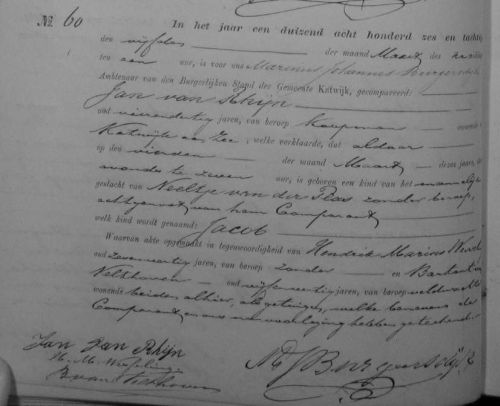 No. 60
In het jaar een duizend acht honderd zes en tachtig
den vijfden der maand Maart des
ten een uur, is voor ons Marinus Johannus Burgersdijk
Ambtenaar van den Burgerlijken Stand der Gemeente Katwijk, gecompareerd:
Jan van Rhijn
oud jaren, van beroep Koopman
Katwijk aan Zee, welke verklaarde, dat aldaar
op den vierden der maand Maart dezes jaars, des
avonds te zeven uur, is geboren een kind van het mannelijk
geslacht van Neeltje van der Plas zonder beroep,
echtgenoot van hem Comparant
welk kind wordt genaamd: Jacob
Waarvan akte opgemaakt in tegenwoordigheid van Hendrik Marinus
oud jaren, van beroep zonder en
Velthoven oud jaren, van beroep veldwachter
wonende beiden alhier, als getuigen, welke benevens de
Comparant en ons na voorlezing hebben geteekend
Jan van Rhijn
H. M.
MJ Burgersdijk